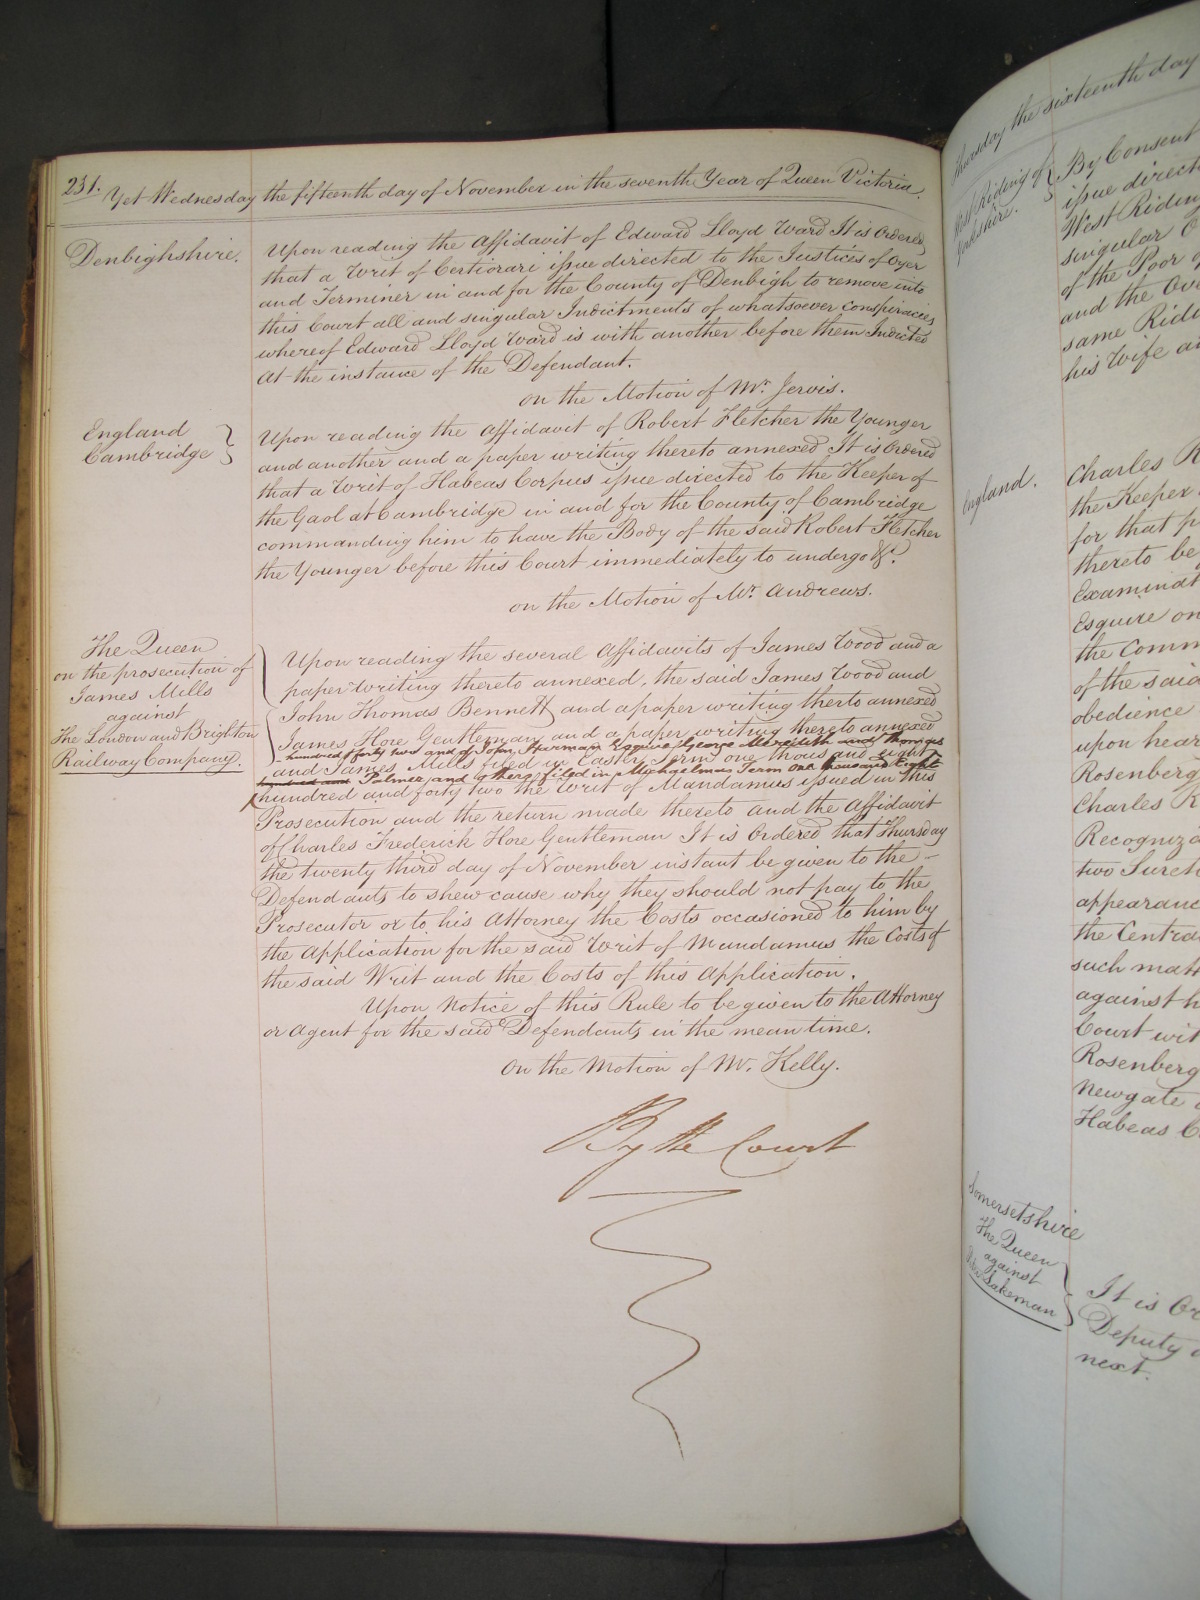 231.
Yet Wednesday the fifteenth day of November in the seventh Year of Queen Victoria.
Denbighshire.
Upon reading the Affidavit of Edward Lloyd Ward It is Ordered
that a Writ of Certiorari issue directed to the Justices of Oyer
and Terminer in and for the County of Denbigh to remove into
this Court all and singular Indictments of whatsoever Conspiracies
whereof Edward Lloyd Ward is with another before them Indicted
At the instance of the Defendant.
on the Motion of Mr. Jervis.
England
Cambridge
Upon reading the Affidavit of Robert Fletcher the Younger
and another and a paper writing thereto annexed It is Ordered
that a Writ of Habeas Corpus issue directed to the Keeper of
the Gaol at Cambridge in and for the County of Cambridge
commanding him to have the Body of the said Robert Fletcher
the Younger before this Court immediately to undergo &c.
on the Motion of Mr. Andrews.
The Queen
on the prosecution of
James Mills
against
The London and Brighton
Railway Company.
Upon reading the several Affidavits of James Wood and a
paper Writing thereto annexed, the said James Wood and
John Thomas Bennett and a paper writing therto annexed
James Hore Gentleman and a paper writing thereto annexed
hundred & forty two and of John Harman Esquire George Meredith and Thomas
and James Mills filed in Easter Term one thousand eight
Palmer and others filed in Michaelmas Term One thousand Eight
hundred and forty two the Writ of Mandamus issued in this
Prosecution and the return made thereto and the Affidavit
of Charles Frederick Hore Gentleman It is Ordered that Thursday
the twenty third day of November instant be given to the
Defendants to shew cause why they should not pay to the
Prosecutor or to his Attorney the Costs occasioned to him by
the Application for the said Writ of Mandamus the Costs of
the said Writ and the Costs of this Application.
Upon Notice of this Rule to be given to the Attorney
or Agent for the said Defendants in the mean time.
On the Motion of Mr. Kelly.
By the Court
Thursday the sixteenth day
West Riding of
Yorkshire.
By Consent
issue direct
West Riding
singular O
of the Poor of
and the Ove
same Ridi
his Wife an
England.
Charles R
the Keeper
for that p
thereto be
Examinat
Esquire on
the Comm
of the said
obedience
upon hear
Rosenberg
Charles R
Recogniza
two Sureti
appearanc
the Centra
such matt
against h
Court wit
Rosenberg
Newgate
Habeas C
Somersetshire
The Queen
against
Sakeman
It is Or
Deputy
next.